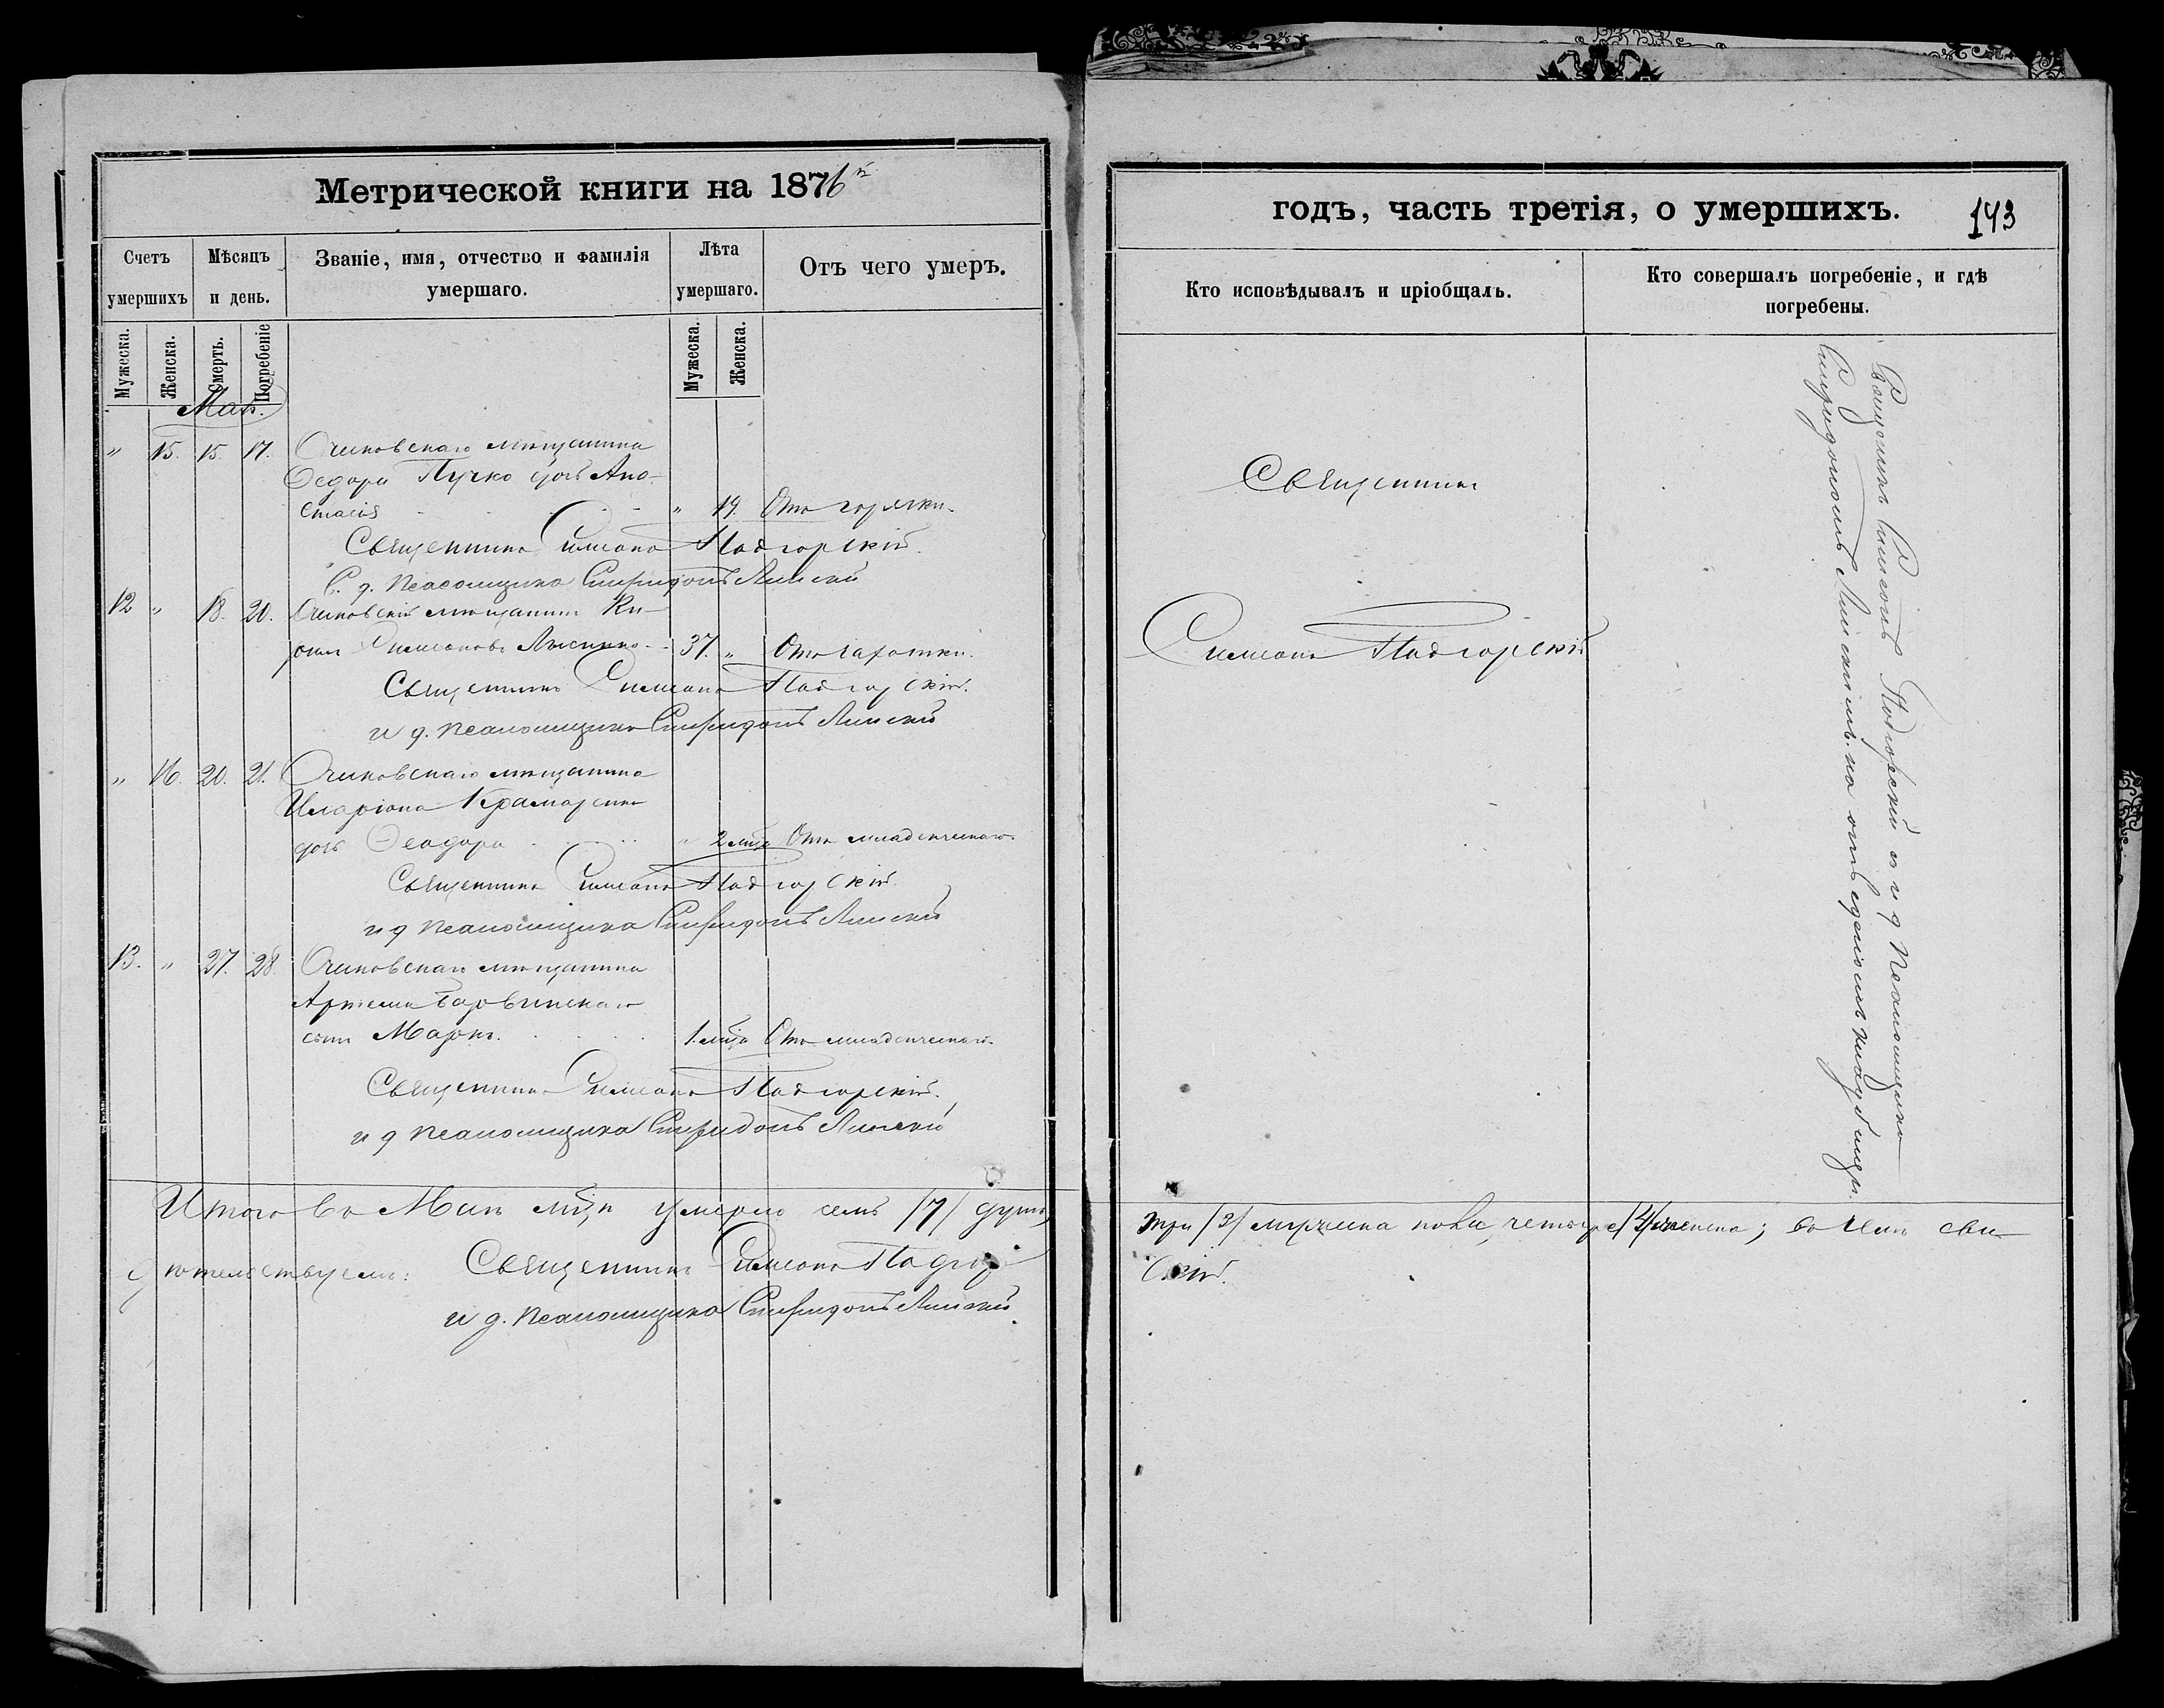 Метрической книги на 1876й
Счетъ умершихъ
Мѣсяцъ и день.
Званіе, имя, отчество и фамилія умершаго.
Лѣта умершаго.
Отъ чего умеръ.
Мужеска.
Женска.
Смерть.
Погребеніе
Мужеска.
Женска.
Май.
" 15. 15. 17. Очаковскаго мѣщанина
Ѳедора Пучко дочь Ана-
стасія " 19. Отъ горячки.
Священникъ Симеонъ Подгорскій.
И. д. псаломщика Спиридонъ Линскій
12 " 18. 20. Очаковскій мѣщанинъ Ки-
рилъ Симеоновъ Лысенко 37. " Отъ чахотки.
Священникъ Симеонъ Подгорскій.
и д. псаломщика Спиридонъ Линскій
" 16. 20. 21. Очаковскаго мѣщанина
Иларіона Крамаренка
дочь Ѳеодора " 2 мѣс. Отъ младенческаго.
Священникъ Симеонъ Подгорскій.
и д псаломщика Спиридонъ Линскій
13. " 27. 28. Очаковскаго мѣщанина
Артема Барвинскаго
сынъ Маркъ. 1 мѣс. Отъ младенческаго.
Священникъ Симеонъ Подгорскій.
и д псаломщика Спиридонъ Линскій
Итого въ Маѣ мѣсяцѣ умерло семь /7/ душъ,
дѣтельствуемъ: Священникъ Симеонъ Подгор
и д. псаломщика Спиридонъ Линскій.
годъ, часть третія, о умершихъ.
143
Кто исповѣдывалъ и пріобщалъ.
Кто совершалъ погребеніе, и гдѣ погребены.
Священникъ
Симеонъ Подгорскій
Священникъ Симеонъ Подгорскій и и д псаломщика
Спиридономъ Линскимъ на кладбищѣ.
три /3/ мужеска пола, четыре /4/ женска; въ чемъ сви-
скій.